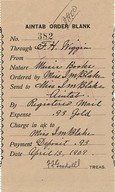 AINTAB ORDER BLANK
No. 382
Through F. H. Wiggin
From
Nature Music Books
Ordered by Miss I M Blake
Send to Miss I M Blake
Aintab
By Registered Mail
Expense .93 Gold
Charge is a/c to
Miss I M Blake
Payment Deposit .93
Date April 13, 1908
TREAS.